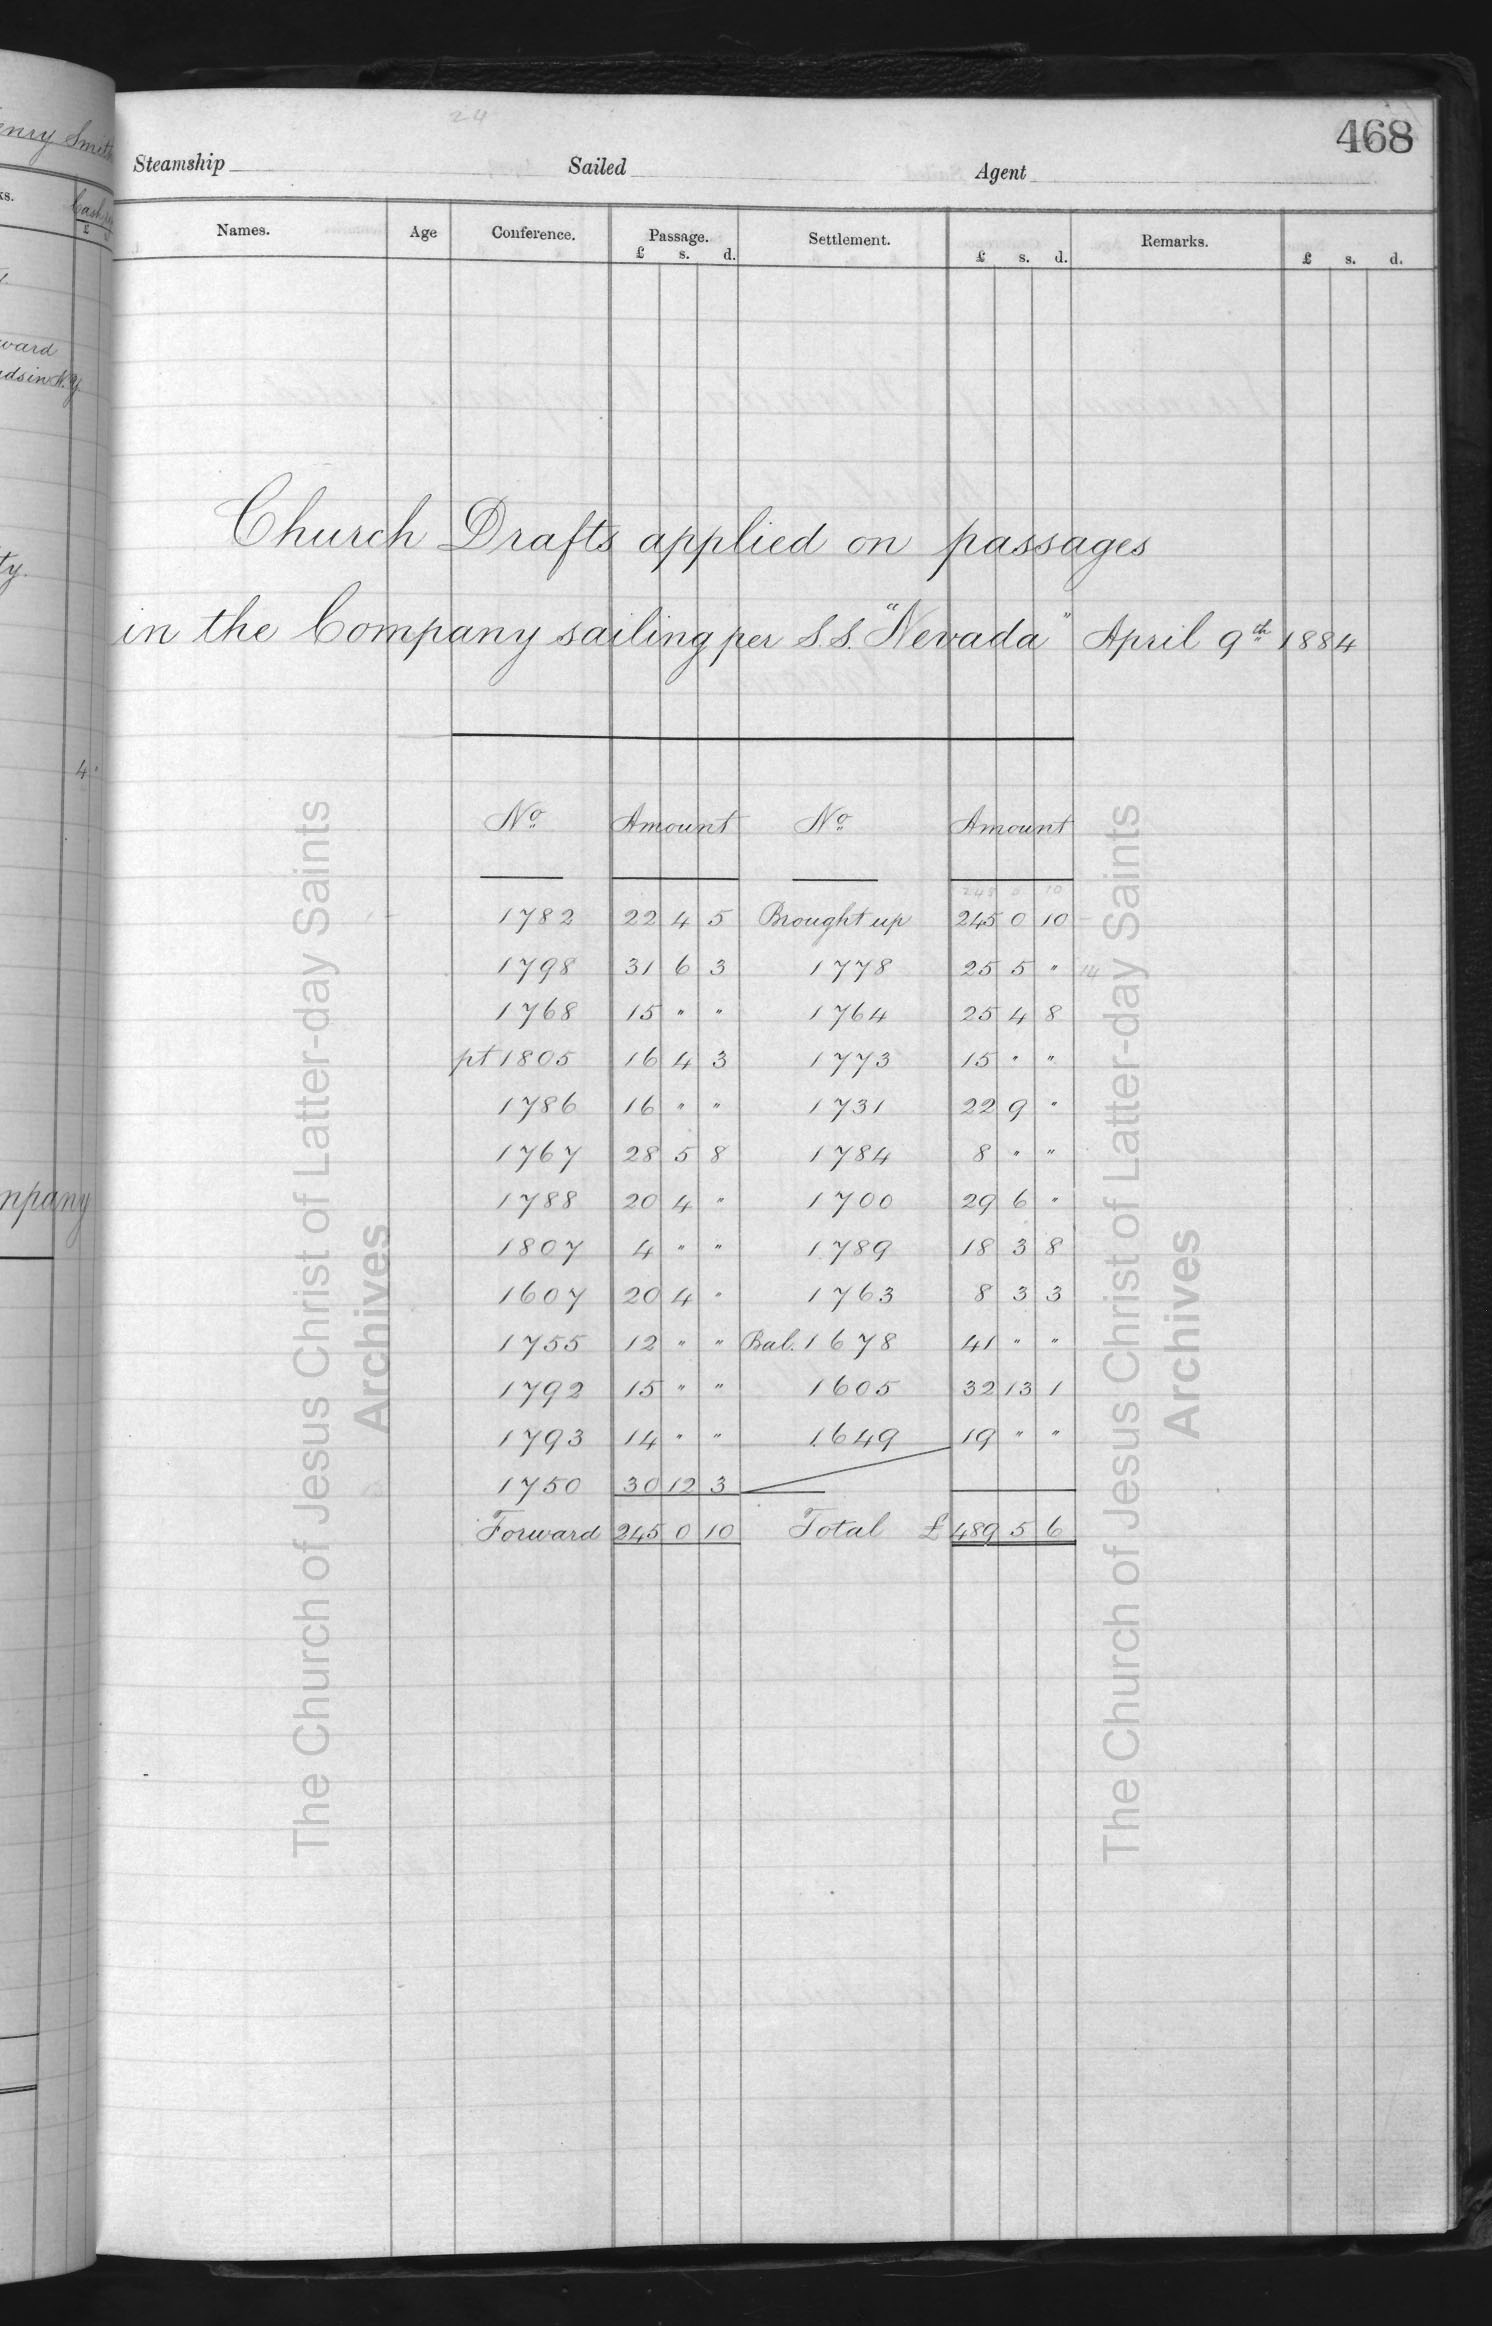 468
Steamship Sailed Agent
Names. Age Conference. Passage. Settlement. Remarks.
£ s. d. £ s. d. £ s. d.
Church Drafts applied on passages
in the Company sailing per S.S. "Nevada" April 9th 1884
No Amount No Amount
1782 22 4 5 Brought up 245 0 10
1798 31 6 3 1778 25 5 "
1768 15 " " 1764 25 4 8
pt 1805 16 4 3 1773 15 " "
1786 16 " " 1731 22 9 "
1767 28 5 8 1784 8 " "
1788 20 4 " 1700 29 6 "
1807 4 " " 1789 18 3 8
1607 20 4 " 1763 8 3 3
1755 12 " " Bal. 1678 41 " "
1792 15 " " 1605 32 13 1
1793 14 " " 1649 19 " "
1750 30 12 3
Forward 245 0 10 Total £ 489 5 6
The Church of Jesus Christ of Latter-day Saints
Archives
The Church of Jesus Christ of Latter-day Saints
Archives